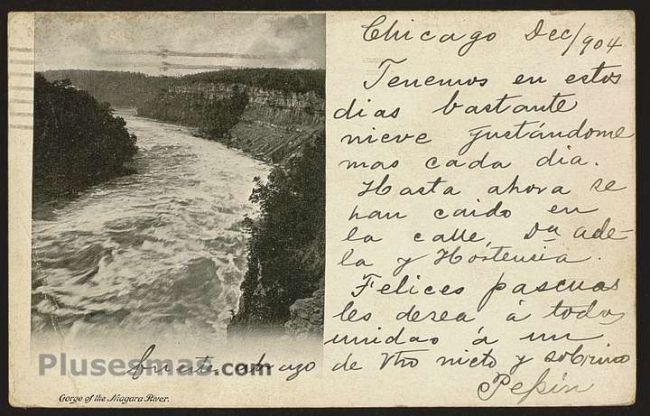 Chicago Dec/904
Tenemos en estos
dias bastante
nieve gustándome
mas cada dia.
Hasta ahora se
han caido en
la calle, Dª Ade-
la y Hortencia.
Felices pascuas
les desea á todos
unidas á un
fuerte abrazo de Vtro nieto y sobrino
Pepin
Plusesmas.com
Gorge of the Niagara River.